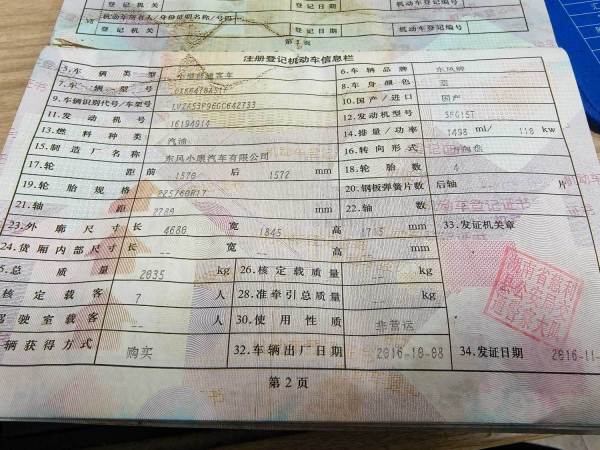 登记机关
登记日期
机动车登记编号
机动车所有人/身份证明名称/号码
登记机关
登记日期
机动车登记编号
第1页
注册登记机动车信息栏
5.车辆类型 小型普通客车 6.车辆品牌 东风牌
7.车辆型号 8.车身颜色 蓝
9.车辆识别代号/车架号 10.国产/进口 国产
11.发动机号 16194914 12.发动机型号 SFG15T
13.燃料种类 汽油 14.排量/功率 1498 ml/ 110 kw
15.制造厂名称 东风小康汽车有限公司 16.转向形式
17.轮距 前 1570 后 1572 mm 18.轮胎数 4
19.轮胎规格 225/60R17 20.钢板弹簧片数 后轴 -- 片
21.轴距 2780 mm 22.轴数
23.外廓尺寸 长 4680 宽 1845 高 1715 mm 33.发证机关章
24.货厢内部尺寸 长 -- 宽 -- 高 -- mm
总质量 2035 kg 26.核定载质量 -- kg
核定载客 7 人 28.准牵引总质量 -- kg
驾驶室载客 -- 人 30.使用性质 非营运
辆获得方式 购买 32.车辆出厂日期 2016-10-08 34.发证日期 2016-11-
湖南省慈利
县公安局交
通警察大队
第2页